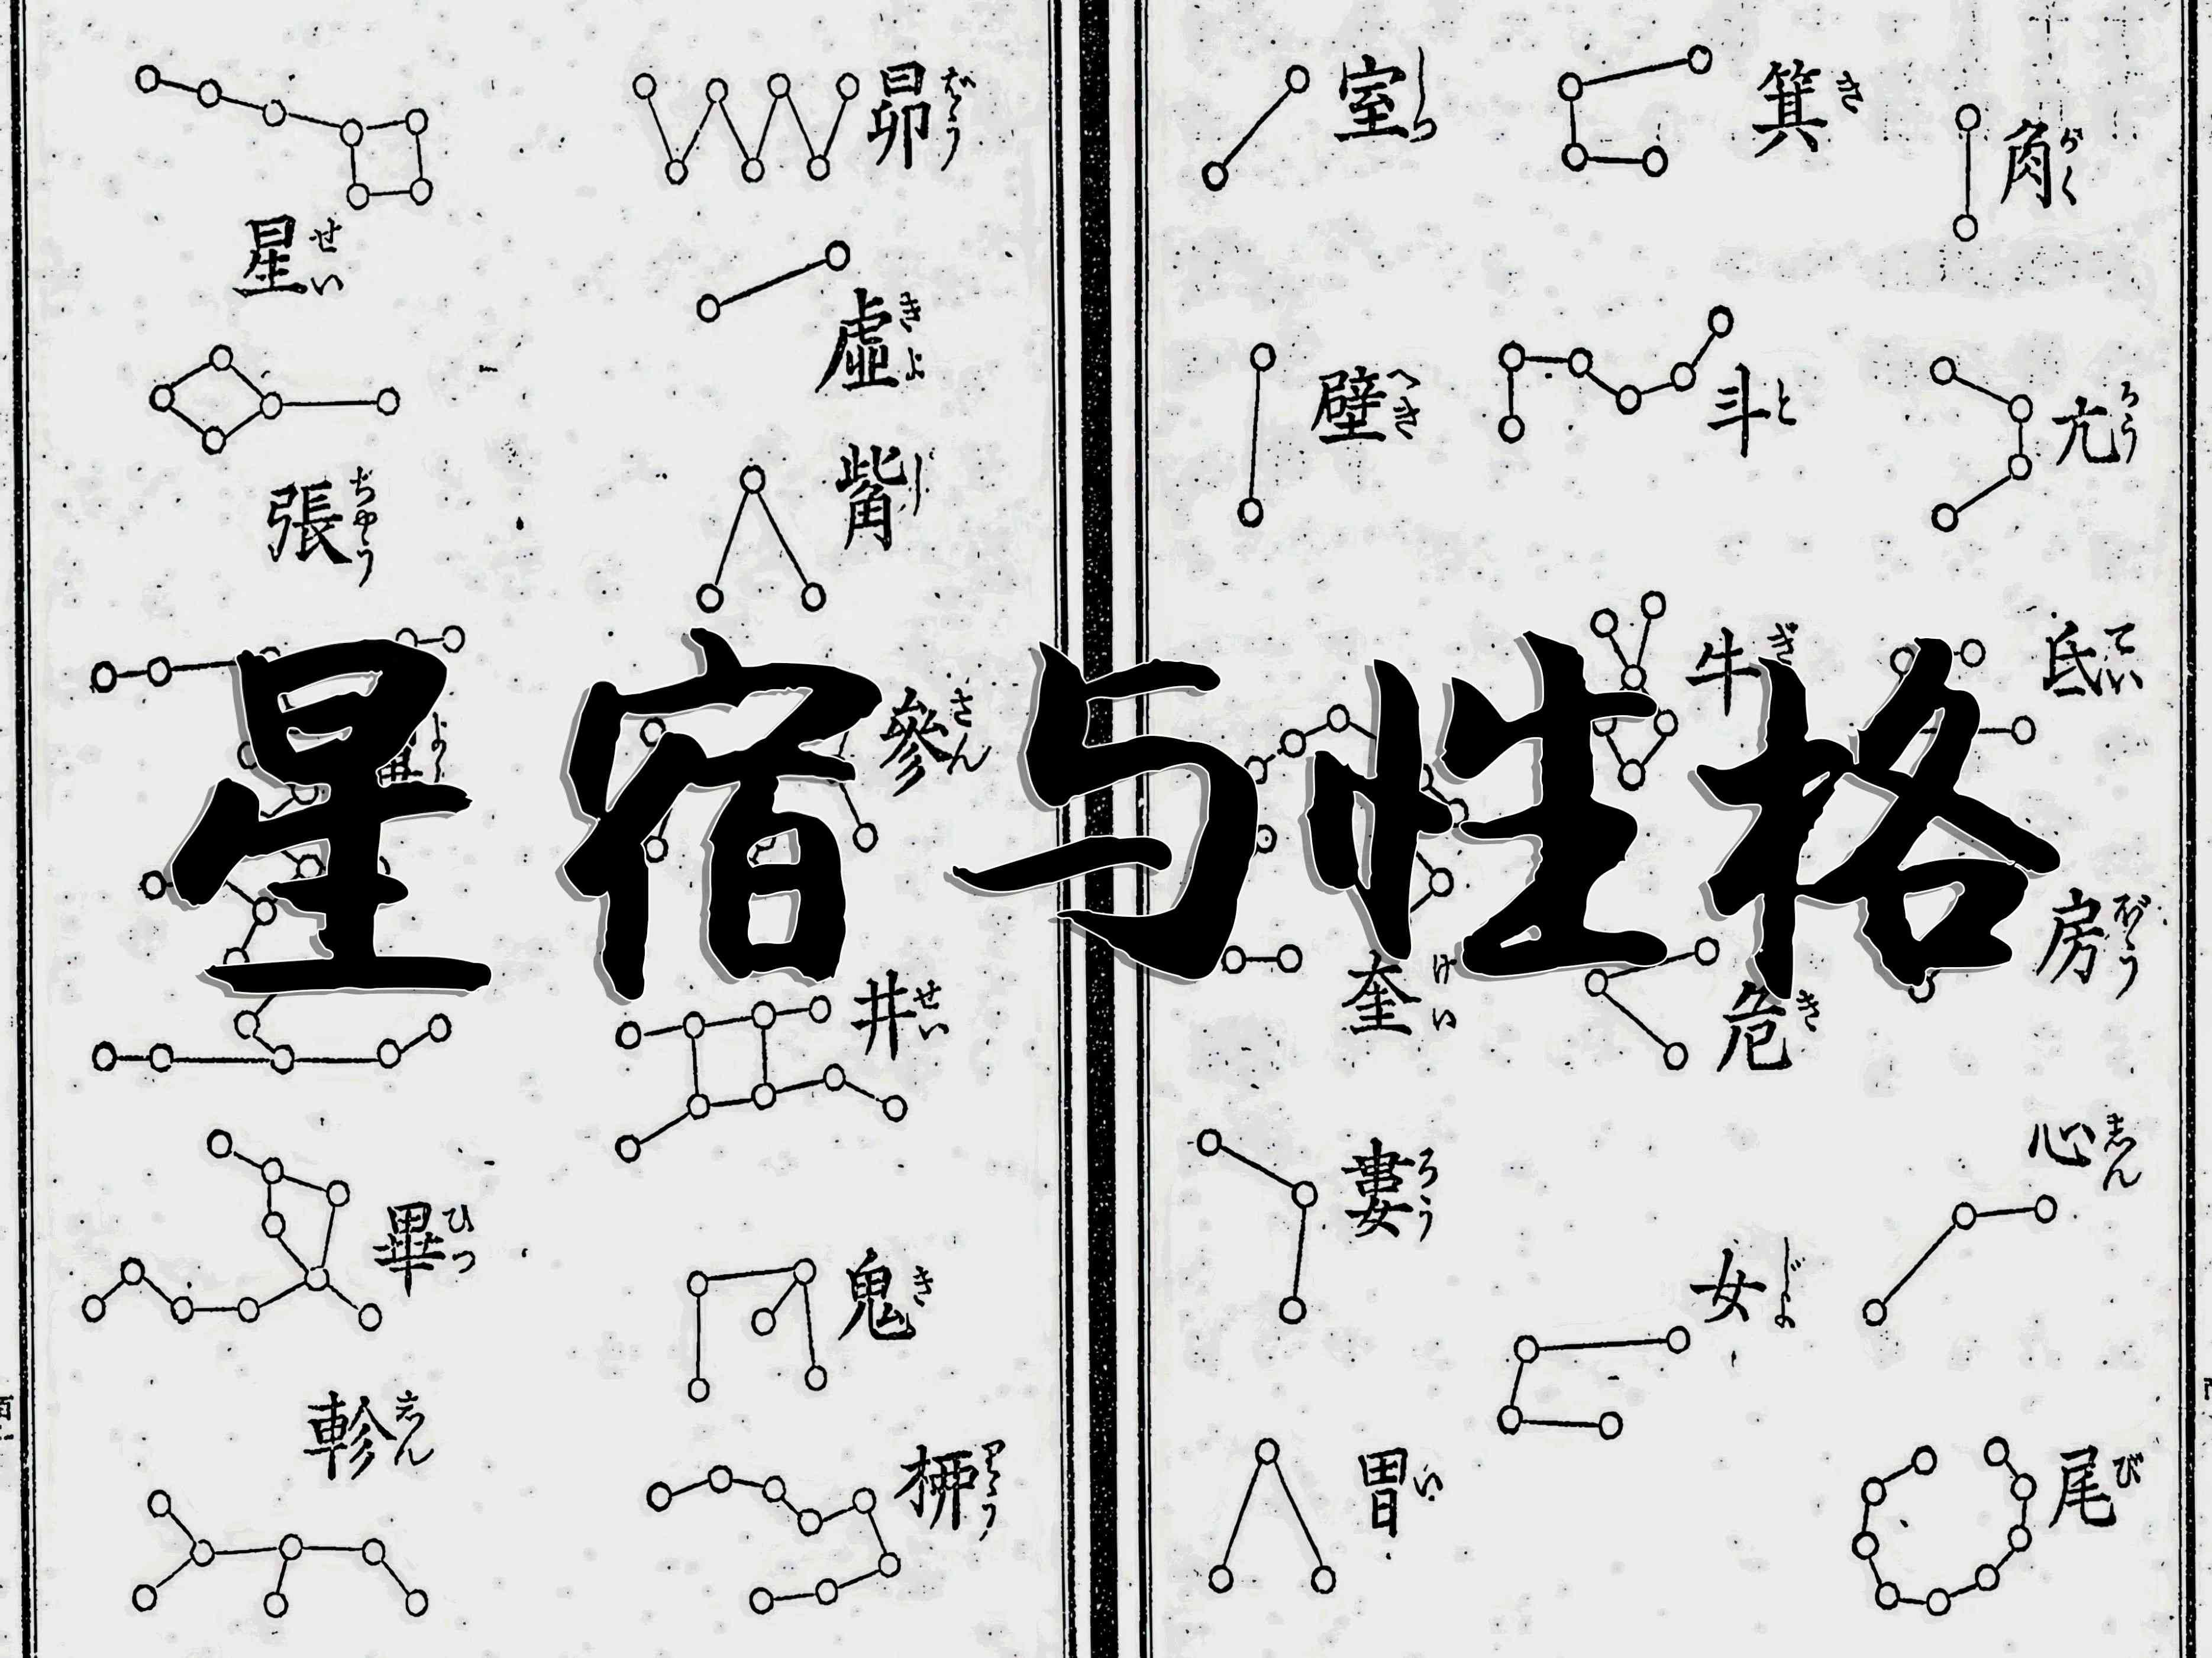 星宿与性格
角 がく
亢 かう
氐 てい
房 ばう
心 志ん
尾 び
箕 き
斗 と
牛 ぎ
女 じよ
危 き
室 しつ
壁 へき
奎 けい
婁 ろう
胃 い
昴 ばう
虛 きよ
觜 し
參 さん
井 せい
鬼 き
桺 りう
星 せい
張 ちやう
畢 ひつ
軫 志ん